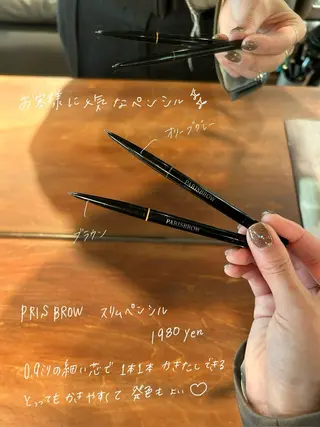 お客様に人気なペンシル
オリーブグレー
PARISBROW
PARISBROW
ブラウン
PRIS BROW スリムペンシル
1980 yen
0.9ミリの細い芯で 1本1本 かきたしできる
とってもかきやすくて 発色もよい♡